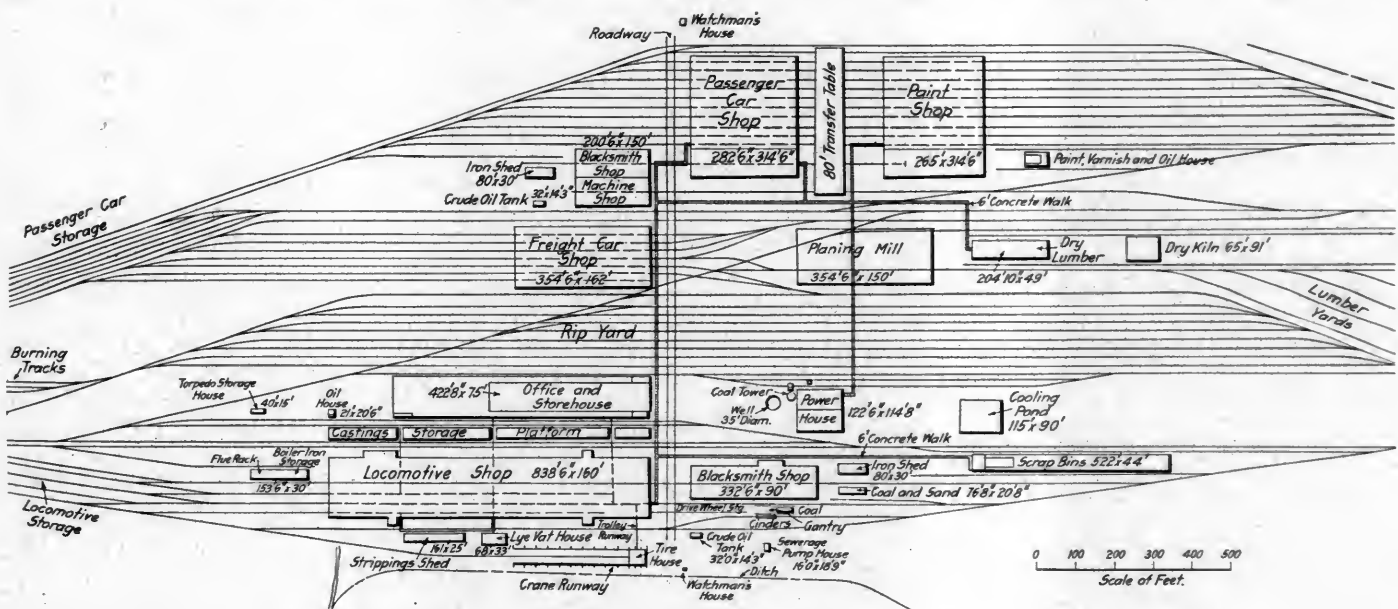 Watchman's
House
Roadway
Passenger
Car
Shop
282'6"x314'6"
80' Transfer Table
Paint
Shop
265'x314'6"
Paint, Varnish and Oil House
200'6"x150'
Blacksmith
Shop
Machine
Shop
Iron Shed
80'x30'
32'x14'3"
Crude Oil Tank
6' Concrete Walk
Passenger Car
Storage
Freight Car
Shop
354'6"x162'
Planing Mill
354'6"x150'
Dry
Lumber
204'10"x49'
Dry Kiln 65'x91'
Lumber
Yards
Rip Yard
Burning
Tracks
Torpedo Storage
House
40'x15'
Oil
House
21'x20'6"
422'8"x75'
Office and
Storehouse
Coal Tower
Well
35' Diam.
Power
House
122'6"x114'8"
Cooling
Pond
115'x90'
Castings
Storage
Platform
6' Concrete Walk
Flue Rack
Boiler Iron
Storage
153'6"x30'
Locomotive Shop 838'6"x160'
Blacksmith Shop
332'6"x90'
Iron Shed
80'x30'
Scrap Bins 522'x44'
Coal and Sand 76'8"x20'8"
Locomotive
Storage
Drive Wheel Stg.
Coal
Cinders
Gantry
Trolley
Runway
161'x25'
Strippings Shed
Lye Vat House
68'x33'
Tire
House
Crane Runway
Crude Oil
Tank
32'0"x14'3"
Sewerage
Pump House
16'0"x18'9"
Ditch
Watchman's
House
0 100 200 300 400 500
Scale of Feet.